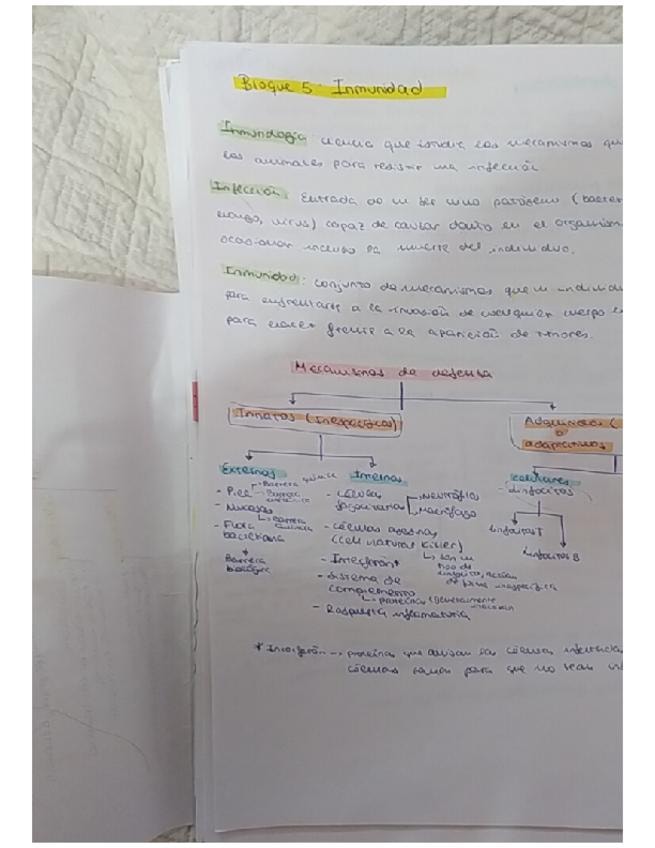 Bloque 5: Inmunidad
Inmunología: ciencia que estudia los mecanismos
los animales para resistir una infección
Infección: Entrada en un ser vivo patógeno (bacter
hongo, virus) capaz de causar daño en el organism
ocasionar incluso la muerte del individuo.
Inmunidad: conjunto de mecanismos que un individu
para enfrentarse a la invasión de cualquier cuerpo
para hacer frente a la aparición de tumores.
Mecanismos de defensa
Innatos (Inespecíficos)
Adquiridos (
o
adaptativos
Externos
Internos
celulares
- Piel
Barrera química
Barrera
- Mucosas
Barrera química
- Flora
bacteriana
Barrera
biológica
- Células
fagocitarias
Neutrófilos
Macrófago
- Células asesinas
(cell natural killer)
son un
tipo de
linfocito,
de forma inespecífica
- Interferón*
- Sistema de
complemento
proteínas
- Respuesta inflamatoria
- Linfocitos
Linfocitos T
Linfocitos B
* Interferón → proteínas que avisan las células
células sanas para que no sean